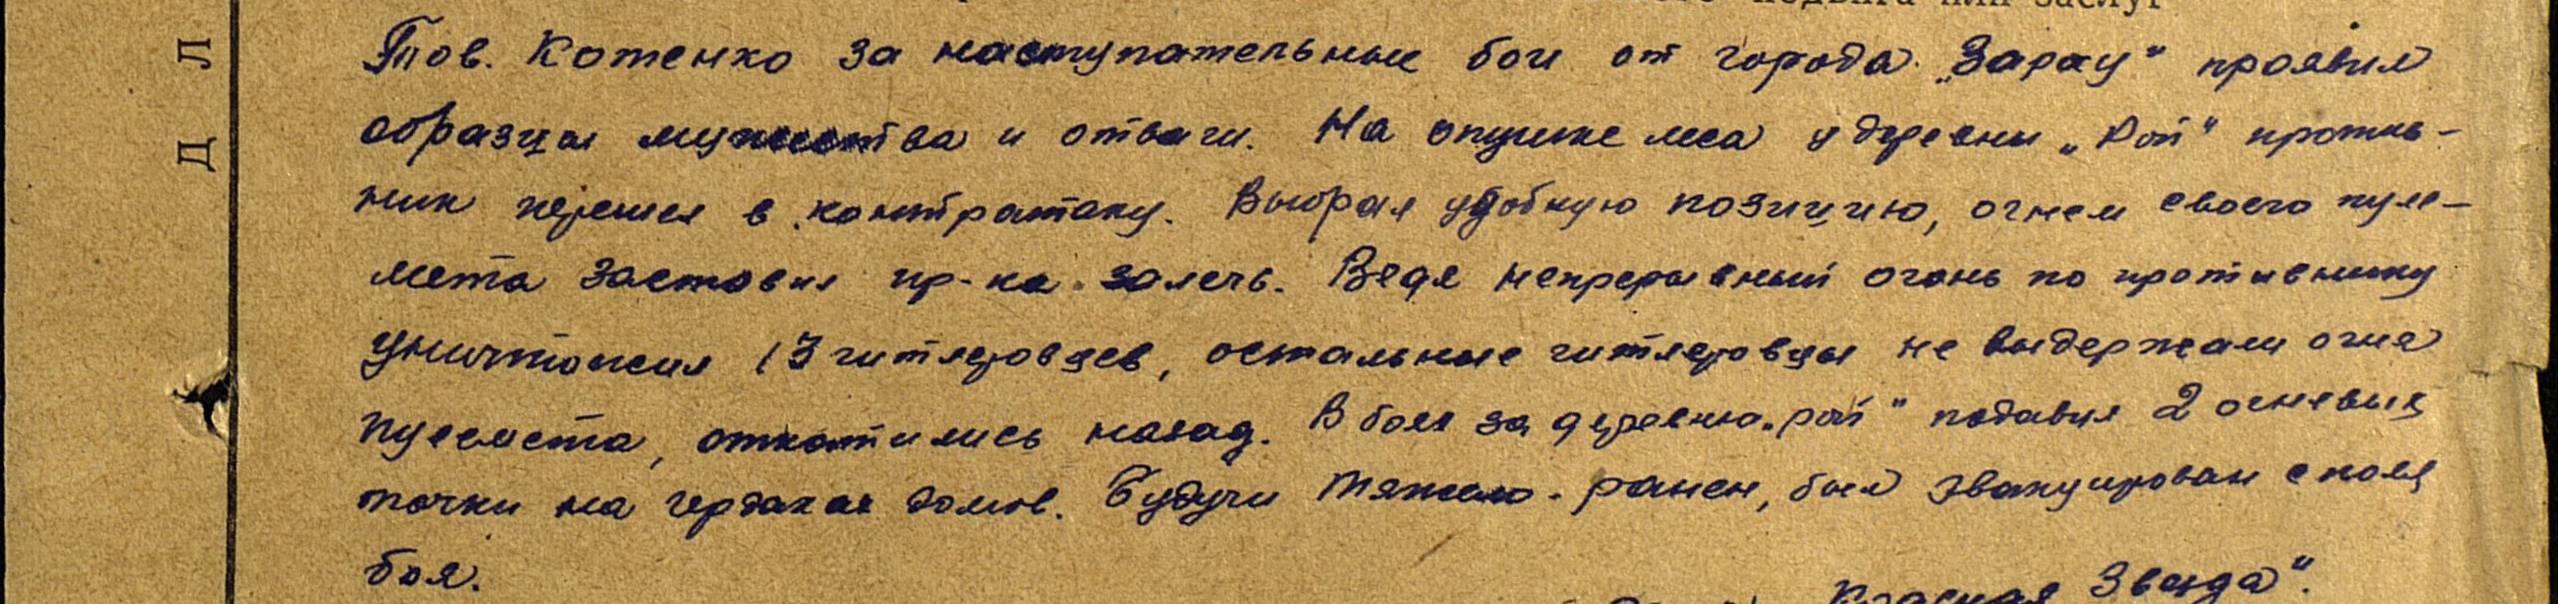 Л
Д
Тов. Котенко за наступательные бои от города „Зарау" проявил
образцы мужества и отваги. На опушке леса у деревни „Рой" против-
ник перешел в контратаку. Выбрал удобную позицию, огнем своего пуле-
мета заставил пр-ка залечь. Ведя непрерывный огонь по противнику
уничтожил 13 гитлеровцев, остальные гитлеровцы не выдержали огня
пулемета, откатились назад. В боях за деревню „рой" подавил 2 огневых
точки на чердаках домов. Будучи тяжело-ранен, был эвакуирован с поля
боя.
Красная Звезда".